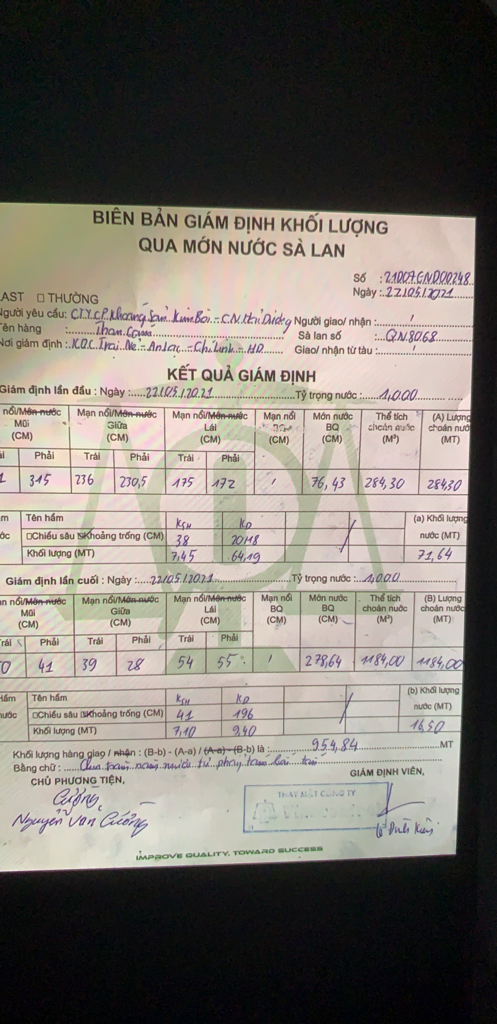 BIÊN BẢN GIÁM ĐỊNH KHỐI LƯỢNG
QUA MỚN NƯỚC SÀ LAN
Số : 21D07GND00248
Ngày : 22/05/2021
LAST □ THƯỜNG
Người yêu cầu: CTY.CP. Khoáng Sản Kim Bôi - C.N Hải Dương Người giao/ nhận :
Tên hàng : Than Cám Sà lan số : QN8068
Nơi giám định : K.D.C Trại Nẻ - An Lạc - Chí Linh - HD Giao/ nhận từ tàu :
KẾT QUẢ GIÁM ĐỊNH
Giám định lần đầu : Ngày : 22/05/2021 Tỷ trọng nước : 1,000
nổi/Món nước Mũi (CM) Mạn nổi/Món nước Giữa (CM) Mạn nổi/Món nước Lái (CM) Mạn nổi BQ (CM) Món nước BQ (CM) Thể tích choán nước (M³) (A) Lượng choán nước (MT)
Phải Trái Phải Trái Phải
315 236 230,5 175 172 76,43 284,30 284,30
Tên hầm KSH KD (a) Khối lượng nước (MT)
□Chiều sâu ☒Khoảng trống (CM) 38
Khối lượng (MT) 7,45 64,19 71,64
Giám định lần cuối : Ngày : 22/05/2021 Tỷ trọng nước : 1,000
nổi/Món nước Mũi (CM) Mạn nổi/Món nước Giữa (CM) Mạn nổi/Món nước Lái (CM) Mạn nổi BQ (CM) Món nước BQ (CM) Thể tích choán nước (M³) (B) Lượng choán nước (MT)
Trái Phải Trái Phải Trái Phải
0 41 39 28 54 55 278,64 1184,00 1184,00
Tên hầm KSH KD (b) Khối lượng nước (MT)
□Chiều sâu ☒Khoảng trống (CM) 41 196
Khối lượng (MT) 7,10 9,40 16,50
Khối lượng hàng giao / nhận : (B-b) - (A-a) / (A-a) - (B-b) là : 954,84 MT
Bằng chữ : Chín trăm năm mươi tư phẩy tám bốn tấn
CHỦ PHƯƠNG TIỆN, GIÁM ĐỊNH VIÊN,
THAY MẶT CÔNG TY
Cường
Nguyễn Văn Cường
Lê Đình Kiên
IMPROVE QUALITY, TOWARD SUCCESS